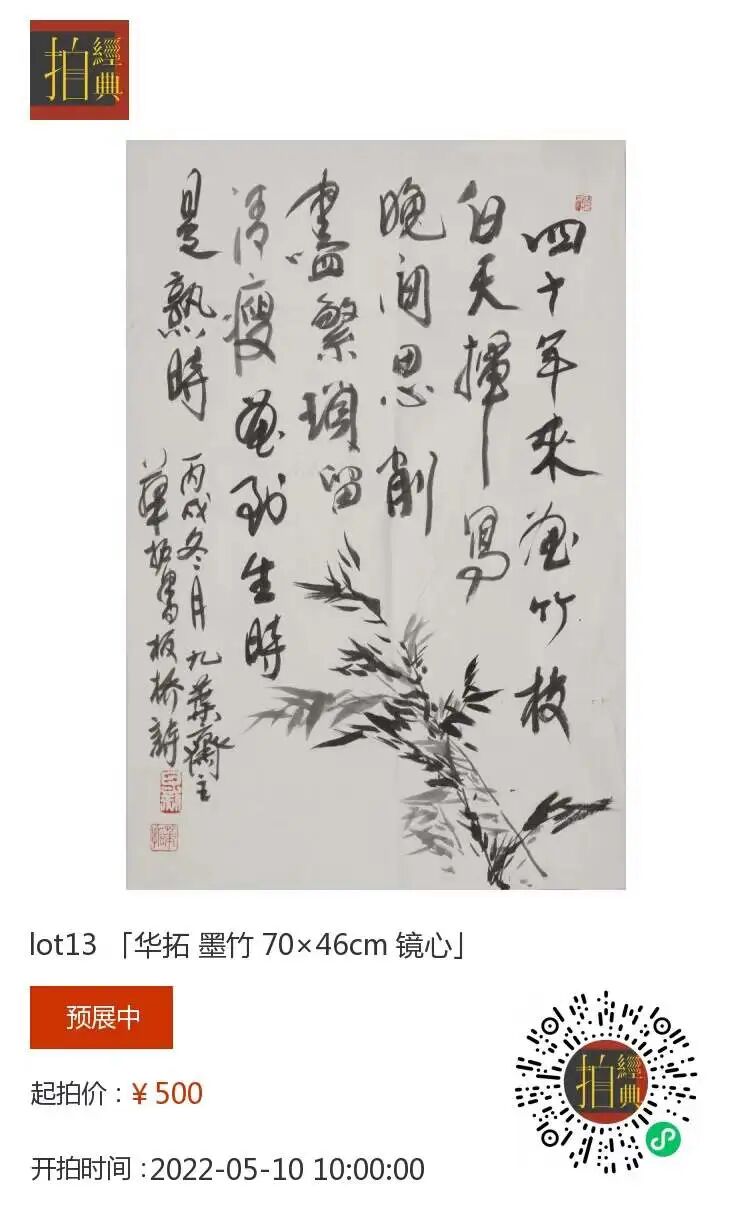 拍經典
四十年來畫竹枝
白天揮寫
晚間思削
盡繁瑣留
清瘦畫到生時
是熟時
丙戌冬月九葉齋主
華拓書板橋詩
lot13 「华拓 墨竹 70×46cm 镜心」
预展中
起拍价：¥ 500
开拍时间：2022-05-10 10:00:00
拍經典